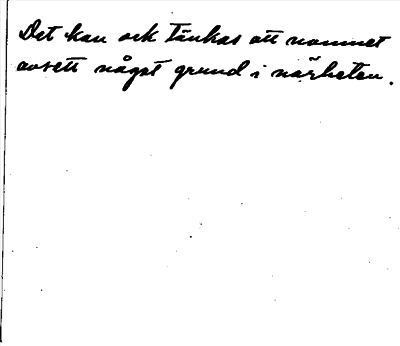 Det kan ock tänkas att namnet
avsett något grund i närheten.